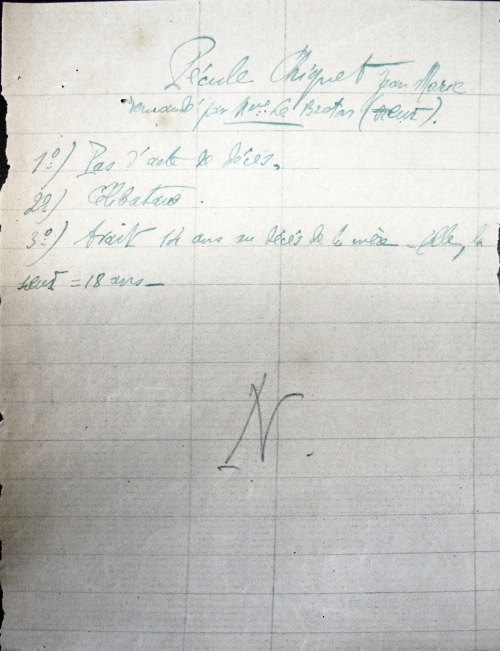 Pécule Chiquet Jean Marie
demandé par Mme Le Breton (sœur).
1º) Pas d'acte de décès.
2º) Célibataire.
3º) Avait 14 ans au décès de la mère - Elle, la
sœur = 18 ans -
N